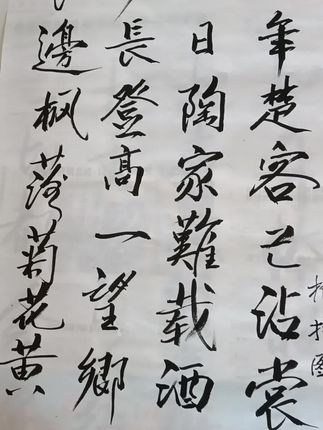 邊楓落菊花黄
長登高一望鄉
日陶家難载酒
年楚客已沾裳